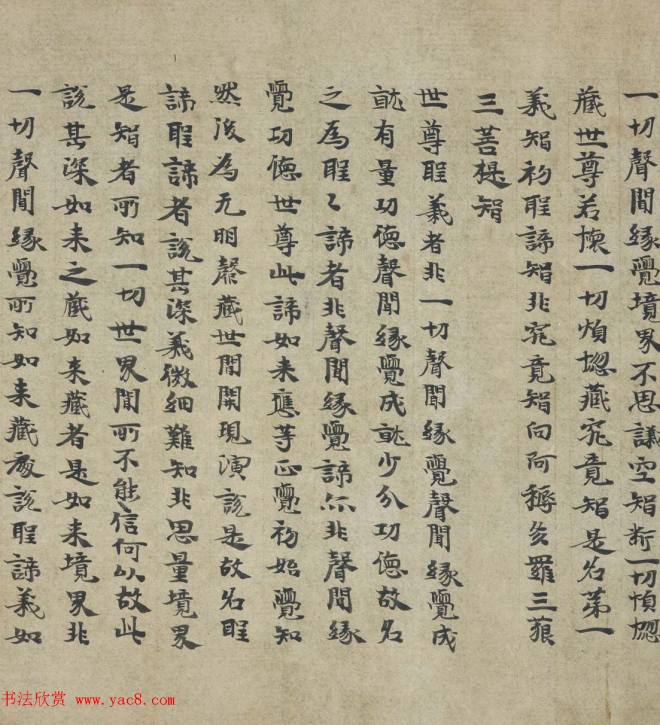 一切聲聞緣覺境界不思議空智断一切煩惱
藏世尊若懷一切煩惱藏究竟智是名第一
義智初聖諦智非究竟智向阿耨多羅三藐
三菩提智
世尊聖義者非一切聲聞緣覺聲聞緣覺成
就有量功德聲聞緣覺成就少分功德故名
之為聖〻諦者非聲聞緣覺諦亦非聲聞緣
覺功德世尊此諦如来應等正覺初始覺知
然後為无明㲉藏世間開現演說是故名聖
諦聖諦者說甚深義微細難知非思量境界
是智者所知一切世界聞所不能信何以故此
說甚深如来之藏如来藏者是如来境界非
一切聲聞緣覺所知如来藏處說聖諦義如
书法欣赏 www.yac8.com